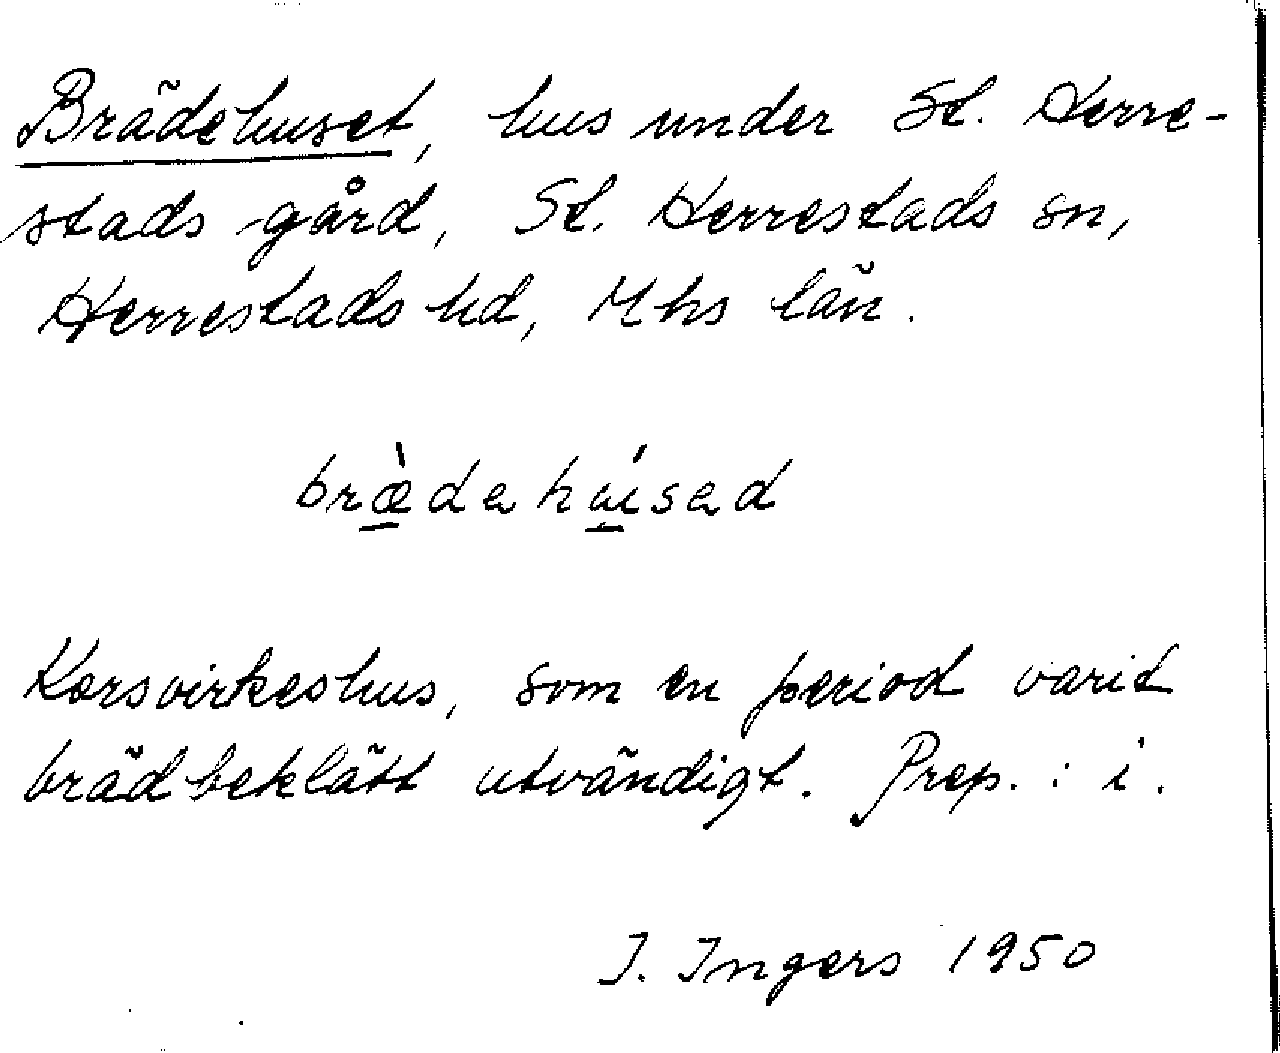 Brädehuset, hus under St. Herre-
stads gård, St. Herrestads sn,
Herrestads hd, Mhs län.
bræ̀dehúised
Korsvirkeshus, som en period varit
brädbeklätt utvändigt. Prep. : i.
I. Ingers 1950